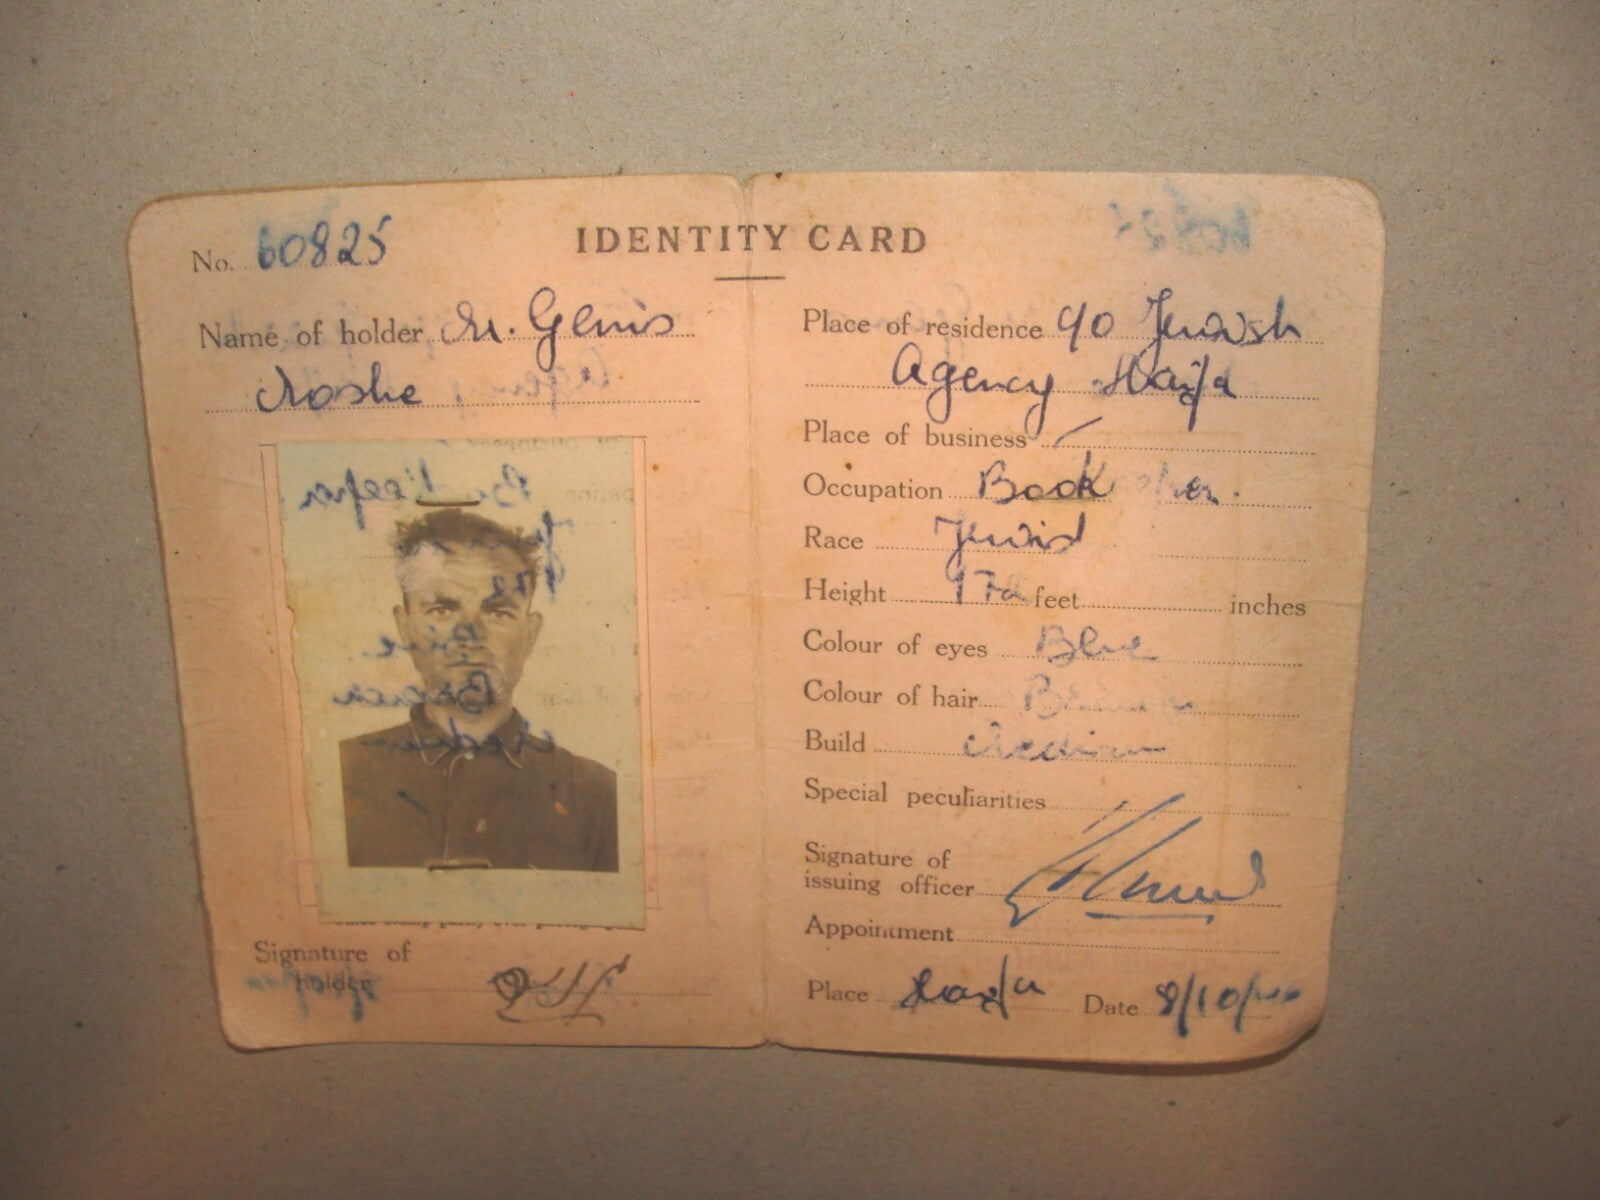 No. 60825
IDENTITY CARD
Name of holder M. Genis
Moshe
Signature of
holder
Place of residence 90 Jewish
Agency Haifa
Place of business
Occupation Book
Race Jewish
Height 172 feet inches
Colour of eyes Blue
Colour of hair
Build Medium
Special peculiarities
Signature of
issuing officer
Appointment
Place Haifa Date 8/10/40